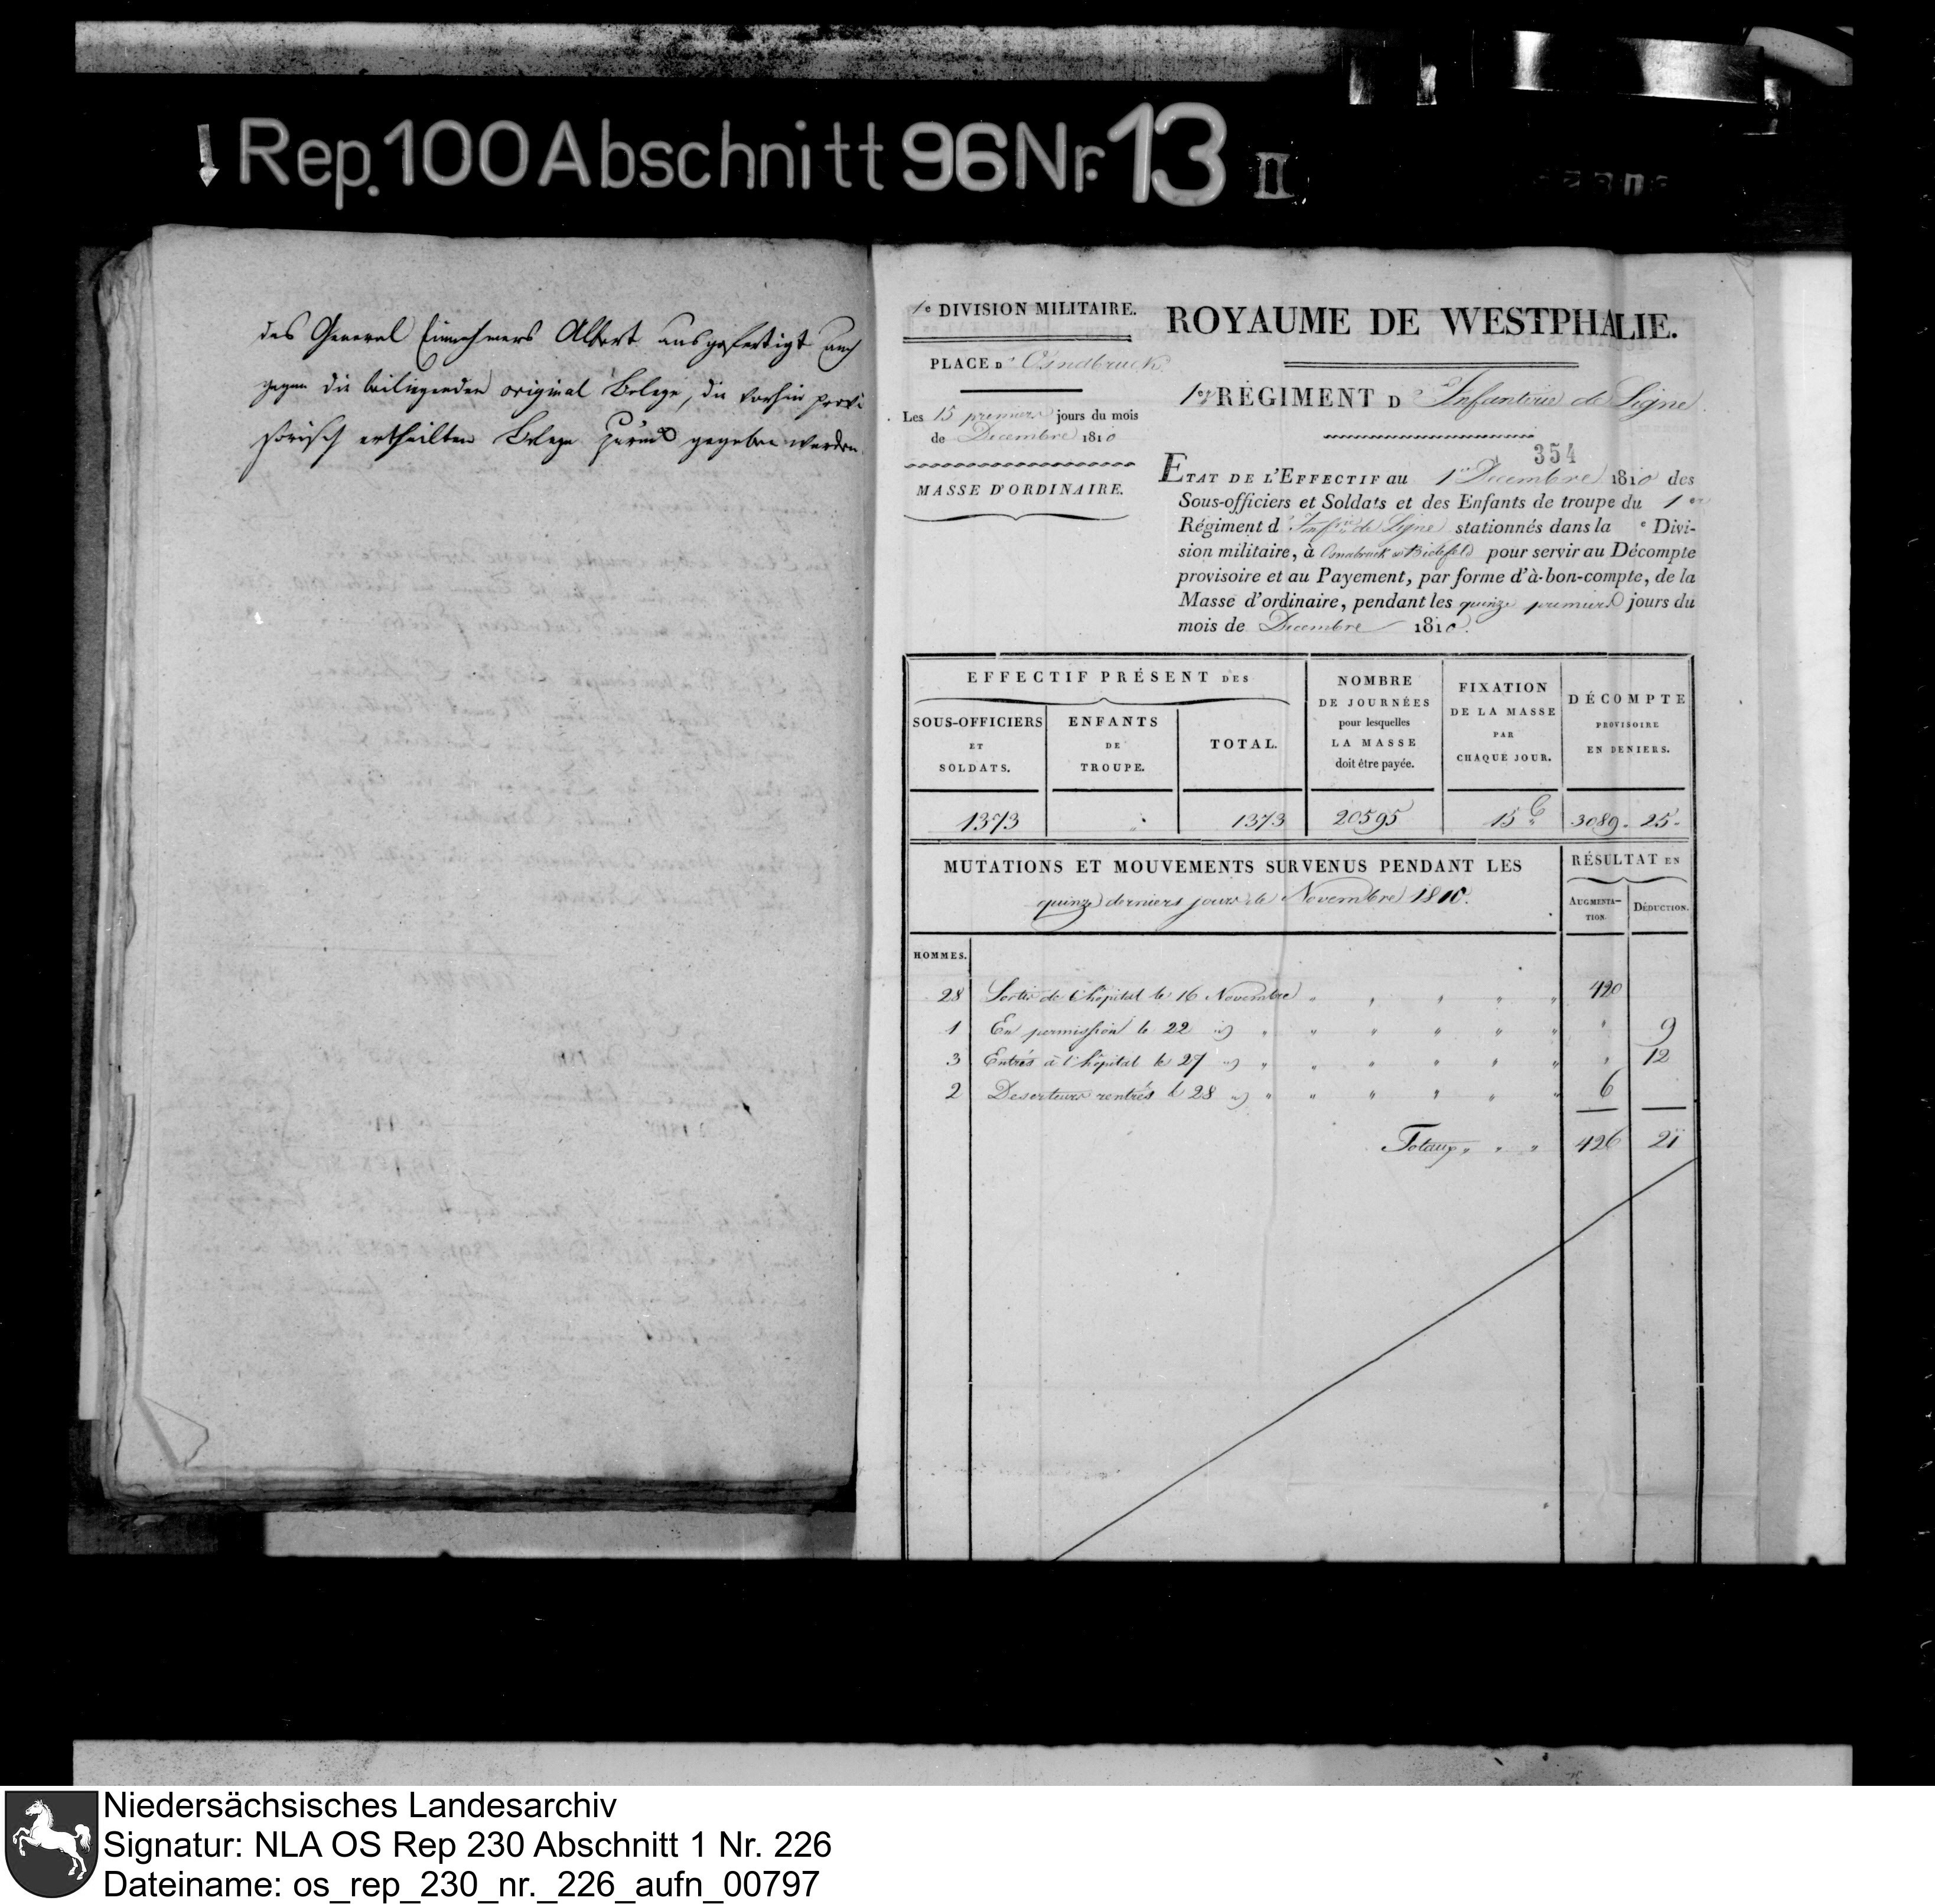 Rep. 100 Abschnitt 96 Nr. 13 II
des General Einnehmers Albert ausgefertigt auch
gegen die beiliegenden original Belege, die vorhin provi
sorisch ertheilten Belege zurück gegeben werden
1e DIVISION MILITAIRE.
PLACE D' Osnabruck
Les 15 premiers jours du mois
de Decembre 1810
MASSE D'ORDINAIRE.
ROYAUME DE WESTPHALIE.
1er RÉGIMENT D' Infanterie de Ligne
354
ETAT DE L'EFFECTIF au 1er Decembre 1810 des
Sous-officiers et Soldats et des Enfants de troupe du 1er
Régiment d' Infrie de Ligne stationnés dans la e Divi-
sion militaire, à Osnabruck et Bielefeld pour servir au Décompte
provisoire et au Payement, par forme d'à-bon-compte, de la
Masse d'ordinaire, pendant les quinze premiers jours du
mois de Decembre 1810.
EFFECTIF PRÉSENT DES
SOUS-OFFICIERS
ET
SOLDATS.
ENFANTS
DE
TROUPE.
TOTAL.
NOMBRE
DE JOURNÉES
pour lesquelles
LA MASSE
doit être payée.
FIXATION
DE LA MASSE
PAR
CHAQUE JOUR.
DÉCOMPTE
PROVISOIRE
EN DENIERS.
1373 " 1373 20595 15 C 3089. 25.
MUTATIONS ET MOUVEMENTS SURVENUS PENDANT LES
quinze derniers jours de Novembre 1810.
RÉSULTAT EN
AUGMENTA-
TION.
DÉDUCTION.
HOMMES.
28 Sortis de l'hôpital le 16 Novembre " " " " " 420
1 En permission le 22 " " " " " " " 9
3 Entrés à l'hôpital le 27 " " " " " " " 12
2 Deserteurs rentrés le 28 " " " " " " 6
Totaux " " " 426 21
Niedersächsisches Landesarchiv
Signatur: NLA OS Rep 230 Abschnitt 1 Nr. 226
Dateiname: os_rep_230_nr._226_aufn_00797